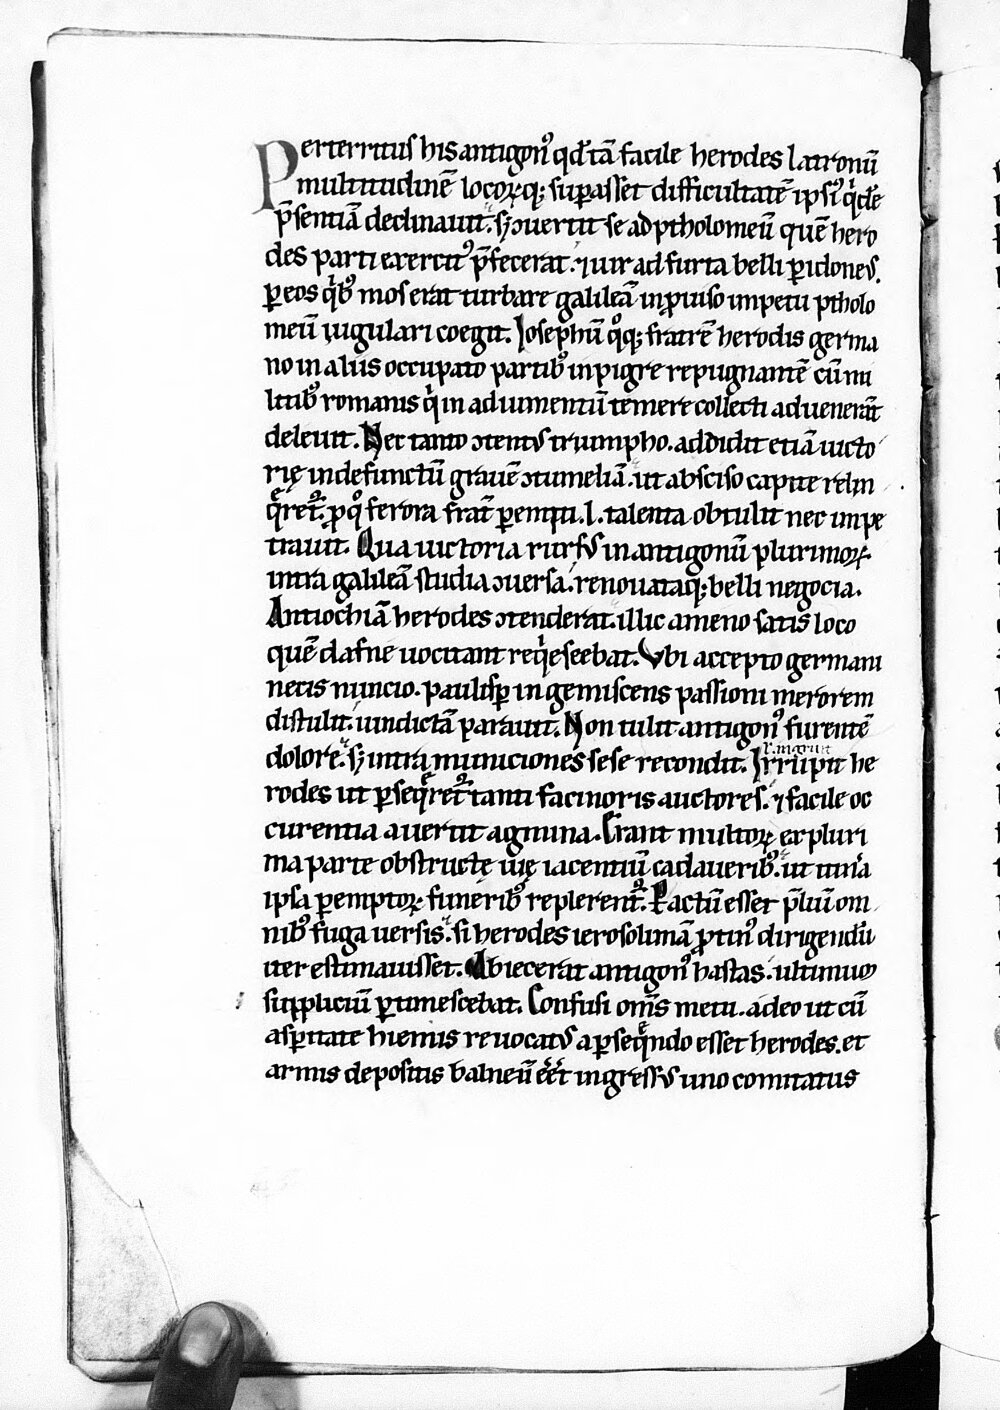 Perterritus his antigon᷒ qd̄ tā facile herodes latronū
multitudinē locoꝝq; suꝑasset difficultatē ipsi᷒ qͥdē
p̄sentiā declinauit. sꝫ ↄuertit se ad ptholomeū quē hero
des parti exercit᷒ p̄fecerat. ⁊ uir ad furta belli ꝑidoneus.
ꝑ eos qͥb᷒ mos erat turbare galileā inꝓuiso impetu ptholo
meū iugulari coegit. Iosephū qͦq; fratrē herodis germa
no in aliis occupato partib᷒ inpigre repugnantē cū mi
litib᷒ romanis qͥ in adiumentū temere collecti aduenerāt
deleuit. Nec tanto ↄtentus triumpho. addidit etiā uicto
rię in defunctū grauē ↄtumeliā. ut absciso capite relin
qͥret᷑. ꝓ qͦ ferora frat̄ ꝑempti. l. talenta obtulit nec impe
trauit. Qua uictoria rursus in antigonū plurimoꝝ
intra galileā studia ↄuersa. renouataq; belli negocia.
Antiochiā herodes ↄtenderat. illic ameno satis loco
quē dafne uocitant reqͥescebat. Vbi accepto germani
necis nuncio. paulisꝑ in gemiscens passioni merorem
distulit. uindictā parauit. Non tulit antigon᷒ furentē
dolorē. sꝫ intra municiones sese recondit. Irrupit he
rodes ut ꝑseqͥret᷑ tanti facinoris auctores. ⁊ facile oc
curentia auertit agmina. Erant multoꝝ ex pluri
ma parte obstructę uię iacentiū cadauerib᷒. ut itin̄a
ipsa ꝑemptoꝝ funerib᷒ replerent᷑. Factū esset p̄liū om
nib᷒ fuga uersis. si herodes ierosolimā ꝓtin᷒ dirigendū
iter estimauisset. Abiecerat antigon᷒ hastas. ultimum
suppliciū ꝑtimescebat. Confusi om̄s metu. adeo ut cū
asꝑitate hiemis reuocatus a ꝑseqͤndo esset herodes. et
armis depositis balneū ingressus uno comitatus